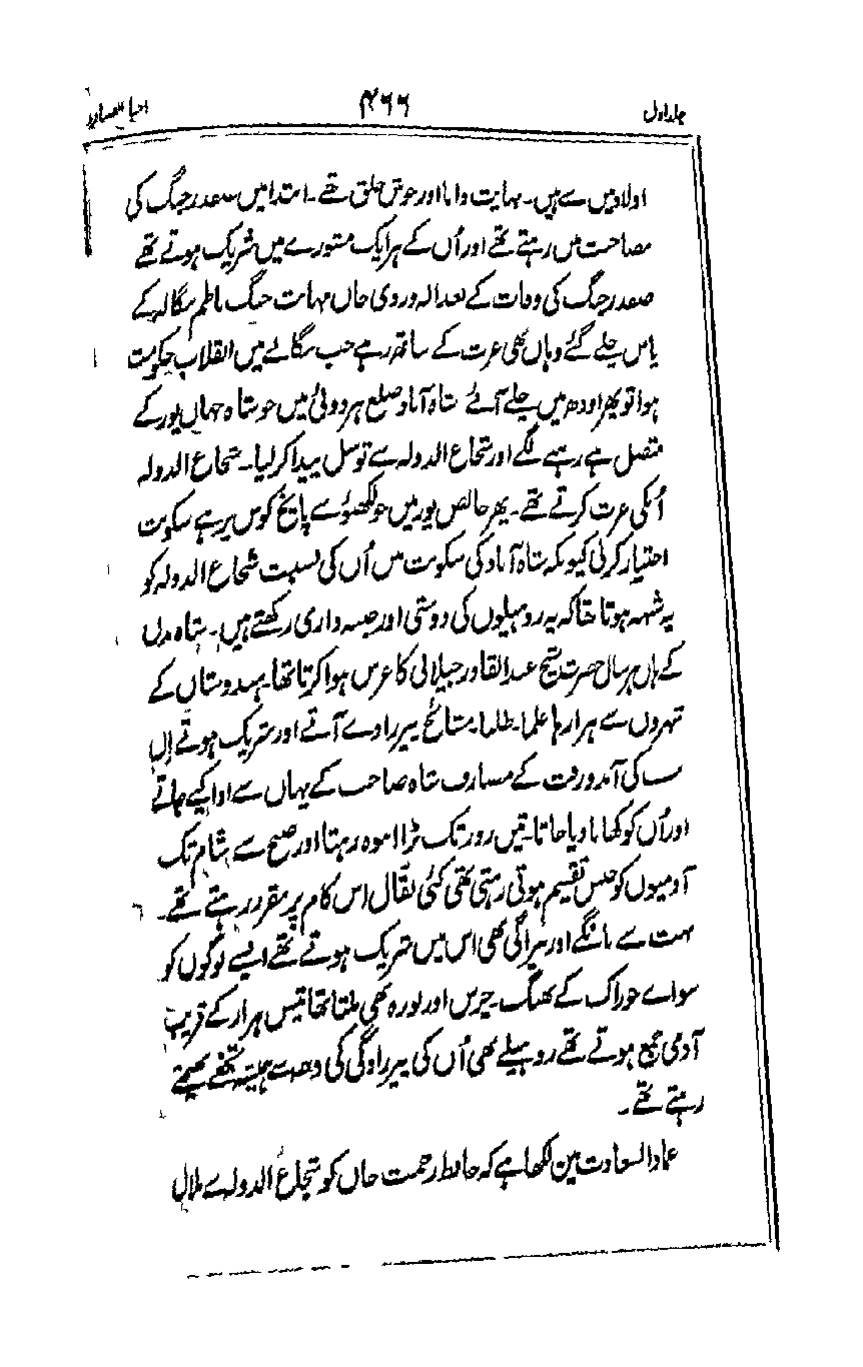 جلد اول ۴۶۶ اخبار الصنادید
اولاد میں سے ہیں۔ نہایت دانا اور خوش خلق تھے۔ ابتدا میں صفدر جنگ کی
مصاحبت میں رہتے تھے اور اُن کے ہر ایک مشورے میں شریک ہوتے تھے
صفدر جنگ کی وفات کے بعد الہ وردی خاں مہابت جنگ ناظم بنگالہ کے
پاس چلے گئے وہاں بھی عزت کے ساتھ رہے جب بنگالے میں انقلاب حکومت
ہوا تو پھر اودھ میں چلے آئے شاہ آباد ضلع ہردوئی میں جو شاہ جہاں پور کے
متصل ہے رہنے لگے اور شجاع الدولہ سے توسل پیدا کر لیا۔ شجاع الدولہ
اُنکی عزت کرتے تھے۔ پھر خالص پور میں جو لکھنؤ سے پانچ کوس پر ہے سکونت
اختیار کر لی کیونکہ شاہ آباد کی سکونت میں اُن کی نسبت شجاع الدولہ کو
یہ شبہہ ہوتا تھا کہ یہ روہیلوں کی دوستی اور جنبہ داری رکھتے ہیں۔ شاہ مدن
کے ہاں ہر سال حضرت شیخ عبد القادر جیلانی کا عرس ہوا کرتا تھا۔ ہندوستان کے
شہروں سے ہزارہا علما۔ طلبا۔ مشائخ پیرزادے آتے اور شریک ہوتے اِن
سب کی آمد و رفت کے مصارف شاہ صاحب کے یہاں سے ادا کیے جاتے
اور اُن کو کھانا دیا جاتا۔ تین روز تک بڑا انبوہ رہتا اور صبح سے شام تک
آدمیوں کو جنس تقسیم ہوتی رہتی تھی کئی بقال اس کام پر مقرر رہتے تھے۔
بہت سے بانگے اور بیراگی بھی اس میں شریک ہوتے تھے ایسے لوگوں کو
سواے خوراک کے بھنگ۔ چرس اور بوزہ بھی ملتا تھا تیس ہزار کے قریب
آدمی جمع ہوتے تھے روہیلے بھی اُن کی پیرزادگی کی وجہ سے ہمیشہ تحفے بھیجتے
رہتے تھے۔
عماد السعادت میں لکھا ہے کہ حافظ رحمت خاں کو شجاع الدولہ سے ملال